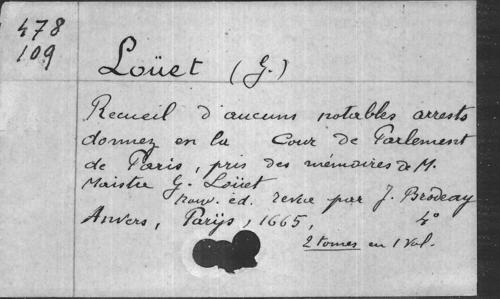 478
109
Loüet (G.)
Recueil d'aucuns notables arrests
donnez en la Cour de Parlement
de Paris, pris des mémoires de M.
Maistre G. Loüet
nouv. éd. revue par J. Brodeau
Anvers, Parijs, 1665, 4°
2 tomes en 1 vol.